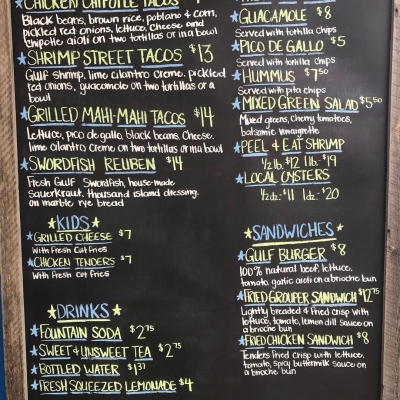 CHICKEN CHIPOTLE TACOS
Black beans, brown rice, poblano & corn,
pickled red onions, lettuce, cheese and
chipotle aioli on two tortillas or in a bowl
SHRIMP STREET TACOS $13
Gulf shrimp, lime cilantro creme, pickled
red onions, guacamole on two tortillas or a
bowl
GRILLED MAHI-MAHI TACOS $14
Lettuce, pico de gallo, black beans, cheese,
lime cilantro creme on two tortillas or in a bowl
SWORDFISH REUBEN $14
Fresh Gulf Swordfish, house-made
sauerkraut, thousand island dressing
on marble rye bread
KIDS
GRILLED CHEESE $7
With Fresh Cut Fries
CHICKEN TENDERS $7
With Fresh Cut Fries
DRINKS
FOUNTAIN SODA $2.75
SWEET & UNSWEET TEA $2.75
BOTTLED WATER $1.37
FRESH SQUEEZED LEMONADE $4
GUACAMOLE $8
Served with tortilla chips
PICO DE GALLO $5
Served with tortilla chips
HUMMUS $7.50
Served with pita chips
MIXED GREEN SALAD $5.50
Mixed greens, cherry tomatoes,
balsamic vinaigrette
PEEL & EAT SHRIMP
1/2 lb. $12 1 lb. $19
LOCAL OYSTERS
1/2 dz. $11 1dz. $20
SANDWICHES
GULF BURGER $8
100% natural beef, lettuce,
tomato, garlic aioli on a brioche bun
FRIED GROUPER SANDWICH $12.75
Lightly breaded & fried crisp with
lettuce, tomato, lemon dill sauce on
a brioche bun
FRIED CHICKEN SANDWICH $8
Tenders fried crisp with lettuce,
tomato, spicy buttermilk sauce on
a brioche bun